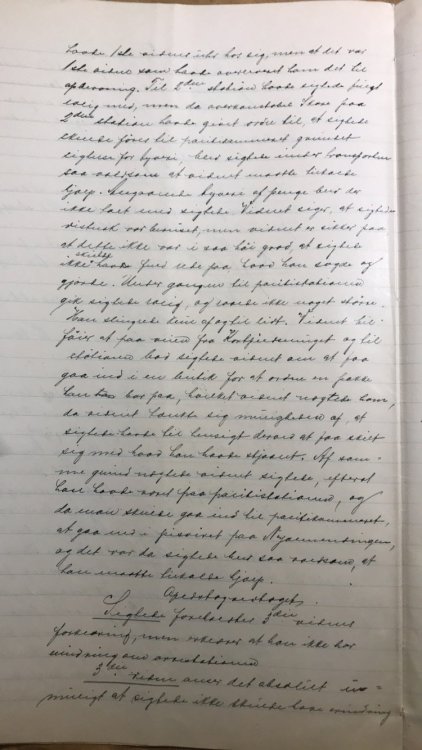 havde 1ste vidnes uhr hos sig, men at det var
1ste vidne som havde overleveret ham det til
opbevaring. Til 2den station havde siktede fulgt
rolig med, men da overkonstabel paa
2den station havde givet ordre til, at siktede
skulde föres til politikammeret grundet
siktelse for tyveri, blev siktede under transporten
saa voldsom at vidnet maatte tilkalde
hjælp. Angaaende tyveri af penge blev der
ikke talt med siktede. Vidnet siger, at siktede
vistnok var beruset, men vidnet er sikker paa
at dette ikke var i saa höi grad at siktede
ikke skulde havde fuld rede paa, hvad han sagde og
gjorde. Under gangen til politistationen
gik siktede rolig, og ravede ikke noget större.
Han slingrede kun af og til lidt. Vidnet til-
föier at paa veien fra og til
stationen bad siktede vidnet om at faa
gaa ind i en butik for at ordne en pakke
han bar paa, hvilket vidnet nægtede ham,
da vidnet tænkte sig muligheden af, at
siktede havde til hensigt derved at faa skilt
sig med hvad han havde stjaalet. Af sam-
me grund nægtede vidnet siktede, efterat
han havde været paa politistationen, og
da man skulde gaa ind til politikammeret,
at gaa ind i pissoiret paa
og det var da siktede blev saa voldsom, at
han maatte tilkalde hjælp.
Oplæst og vedtaget.
Siktede foreholdes 3die vidnes
forklaring, men erklærer at han ikke har
erindring om arrestationen
3die vidne anser det absolut u-
muligt at siktede ikke skulde have erindring